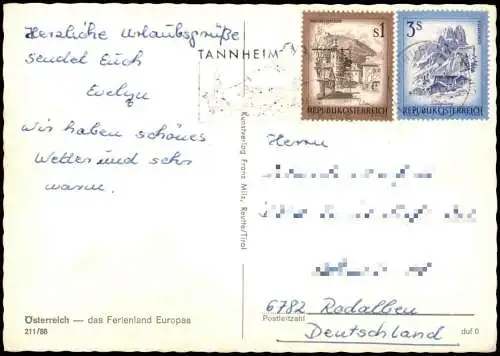 Herzliche Urlaubsgrüße
sendet Euch
Evelyn
Wir haben schönes
Wetter und sehr
warm.
Österreich — das Ferienland Europas
211/88
Kunstverlag Franz Milz, Reutte/Tirol
TANNHEIM
S1
REPUBLIK ÖSTERREICH
3S
REPUBLIK ÖSTERREICH
Herrn
6782 Rodalben
Postleitzahl
Deutschland
duf 0